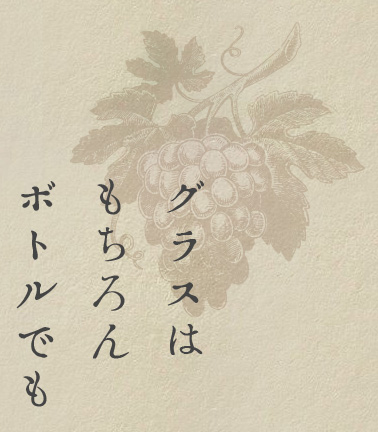 グラスは
もちろん
ボトルでも